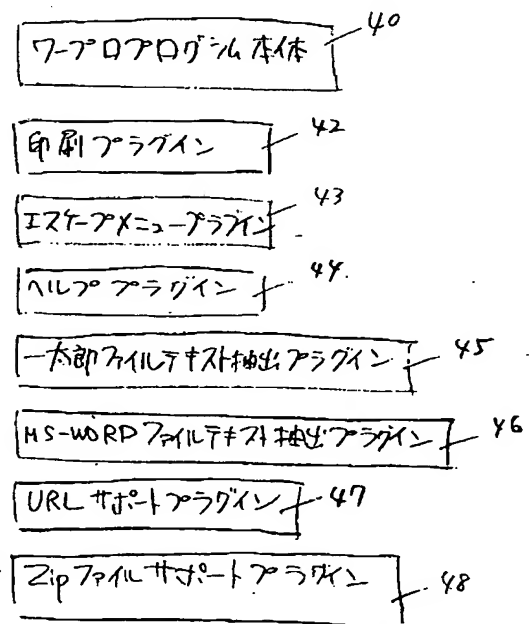 ワープロプログラム本体 40
印刷プラグイン 42
エスケープメニュープラグイン 43
ヘルププラグイン 44
一太郎ファイルテキスト抽出プラグイン 45
MS-WORDファイルテキスト抽出プラグイン 46
URLサポートプラグイン 47
Zipファイルサポートプラグイン 48